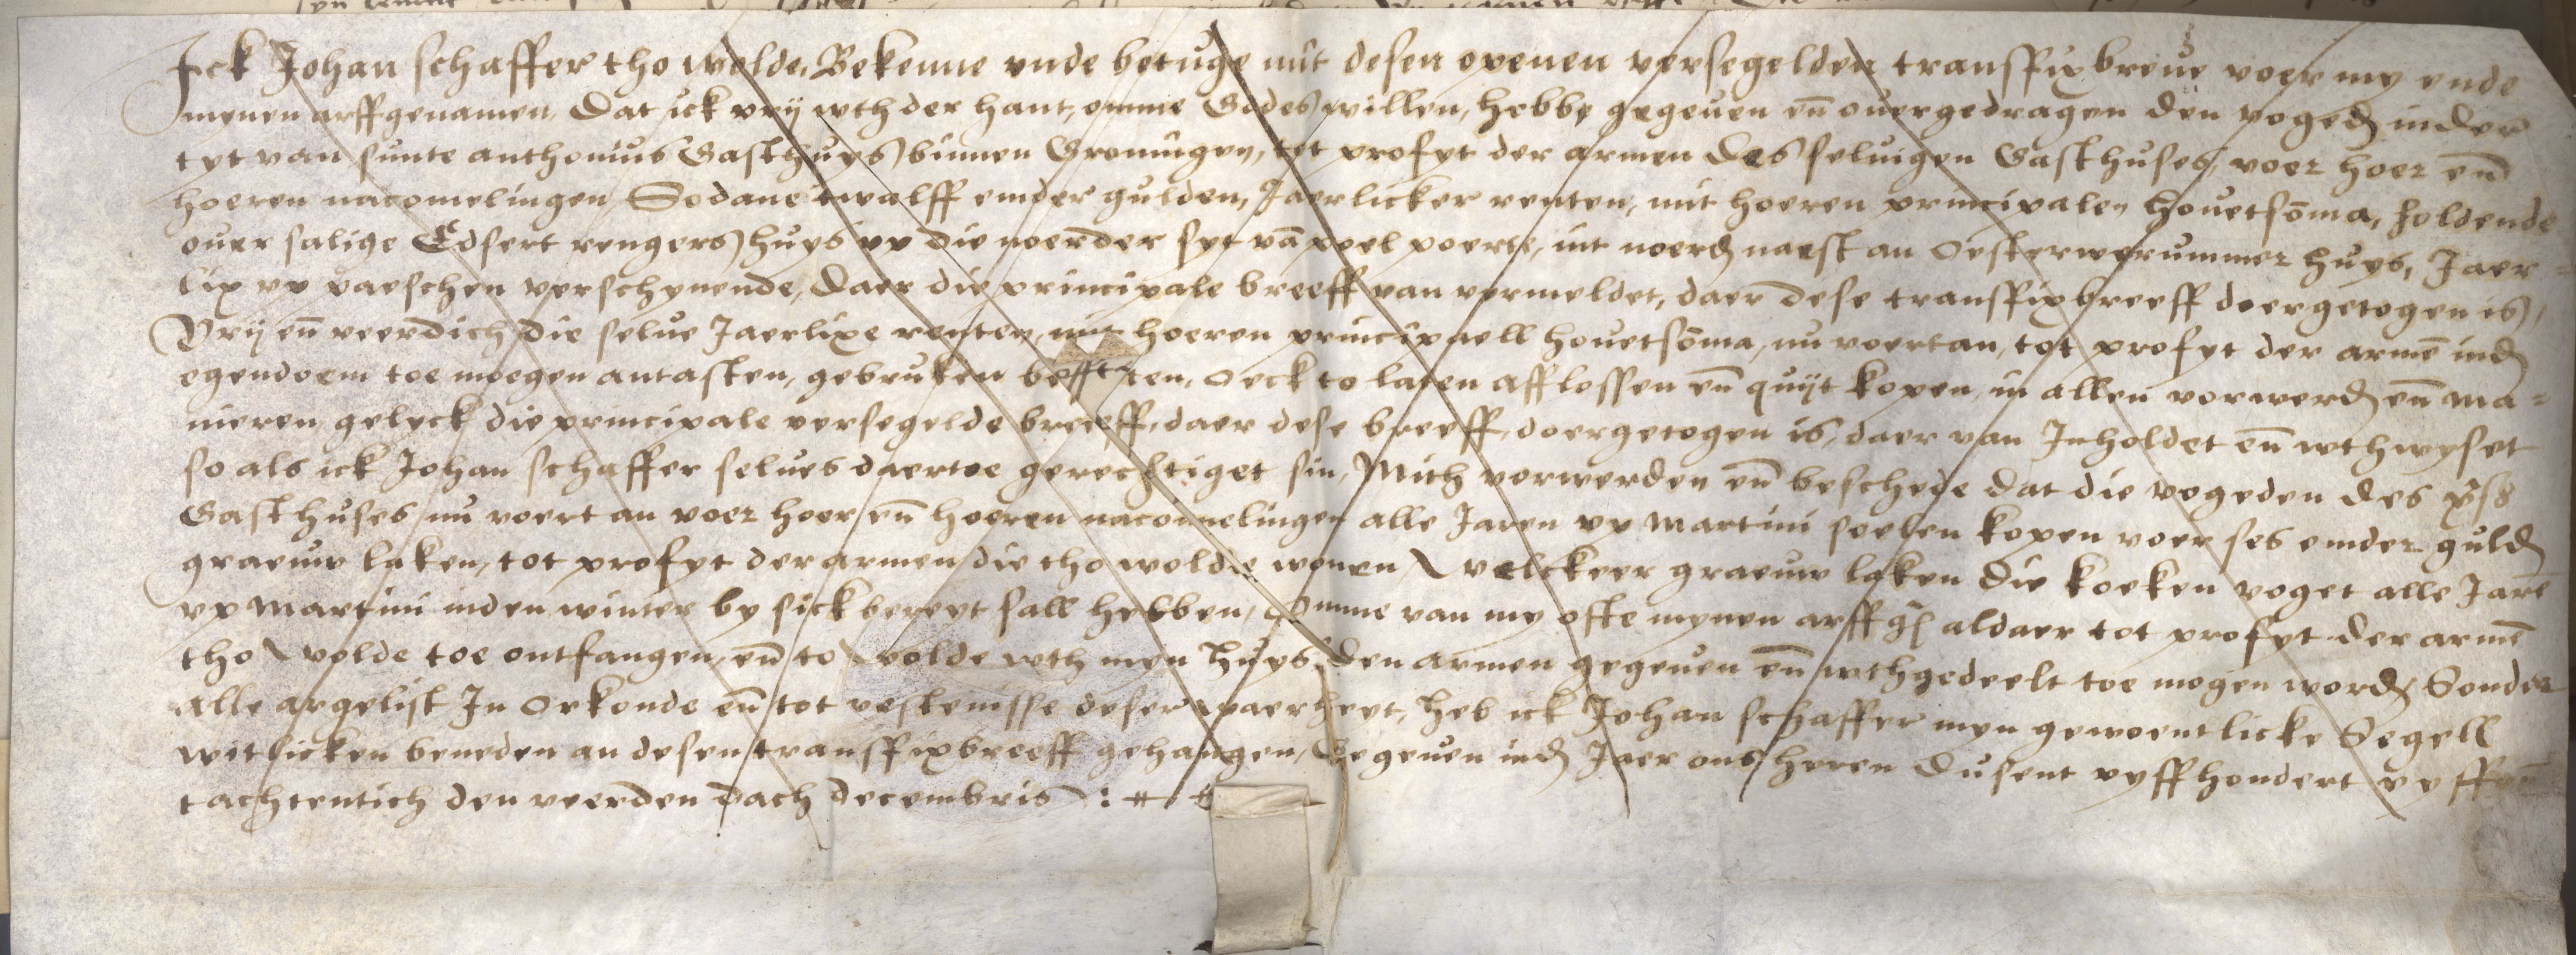 Ick Johan schaffer tho wolde, Bekenne vnde betuge mit desen openen versegelden transfixbreue voer my ende
mynen arffgenamen, Dat ick vrij wth der hant, omme Godes willen, hebbe gegeuen eñ ouergedragen den voged inder
tyt van sunte anthonius Gasthuys binnen Groningen, tot profyt der armen des seluigen Gasthuses, voer hoer eñ
hoeren nacomelingen, Sodane twalff emder gulden, Jaerlicker renten, mit hoeren principalen houetsõma, holdende
ouer salige Edsert rengers huys vp die noerder syt vã poel poerte, int noerd naest an Oesterwerummer huys, Jaer-
lix vp paeschen verschynende, Daer die principale breeff van vermeldet, daer dese transfixbreeff doergetogen is,
Vrij eñ veerdich die selue Jaerlixe renten, mit hoeren principaell houetsõma, nu voertan, tot profyt der armẽ ind
egendoem toe moegen antasten, gebruken besitten, Oeck to laten afflossen eñ quijt kopen, in allen vorwerd eñ ma=
nieren, gelyck die principale versegelde breeff, daer dese breeff, doergetogen is, daer van Inholdet eñ wthwyset
so als ick Johan schaffer selues daertoe gerechtiget sin, Mith vorwerden eñ beschede dat die vogeden des
Gasthuses nu voert an voer hoer eñ hoeren nacomelingen alle Jaren vp Martini soelen kopen voer ses emder guld
graeuw laken, tot profyt der armen die tho wolde wonen, Welckeer graeuw laken die koeken voget alle Jarẽ
vp Martini inden winter by sick bereyt sall hebben, Omme van my ofte mynen arffg aldaer tot profyt der armẽ
tho Wolde toe ontfangen, eñ to Wolde wth myn huys, den armen gegeuen eñ wthgedeelt toe mogen word, Sonder
alle argelist In Orkonde eñ tot vestenisse deser waerheyt, heb ick Johan schaffer myn gewoentlicke Segell
witlicken beneden an desen transfixbreeff gehangen, Gegeuen ind Jaer ons heren Dusent vyffhondert vyff eñ
tachtentich den veerden dach decembris